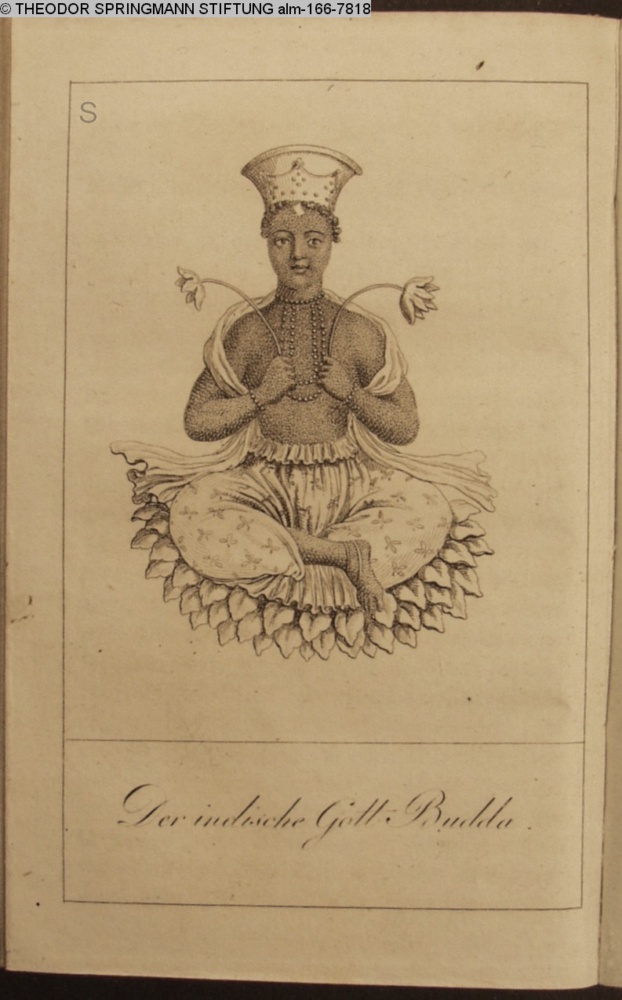 © THEODOR SPRINGMANN STIFTUNG alm-166-7818
S
Der indische Gott Budda.